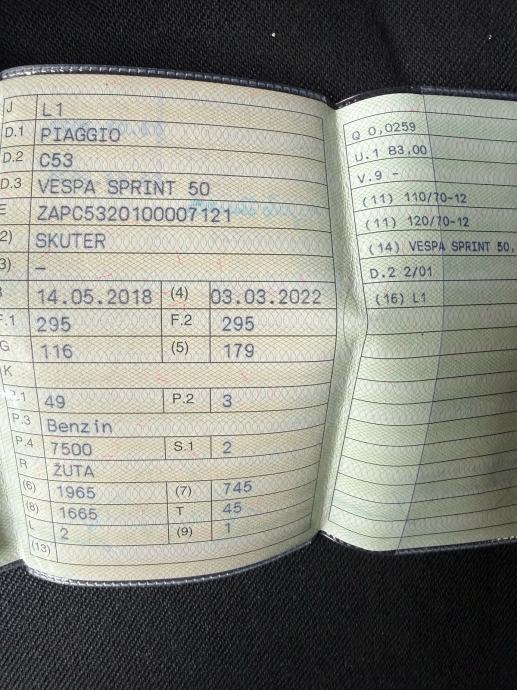 J L1
D.1 PIAGGIO
D.2 C53
D.3 VESPA SPRINT 50
E ZAPC5320100007121
2) SKUTER
3) –
B 14.05.2018 (4) 03.03.2022
F.1 295 F.2 295
G 116 (5) 179
K
P.1 49 P.2 3
P.3 Benzin
P.4 7500 S.1 2
R ŽUTA
(6) 1965 (7) 745
(8) 1665 T 45
L 2 (9) 1
(13)
Q 0,0259
U.1 83,00
V.9 -
(11) 110/70-12
(11) 120/70-12
(14) VESPA SPRINT 50,
D.2 2/01
(16) L1